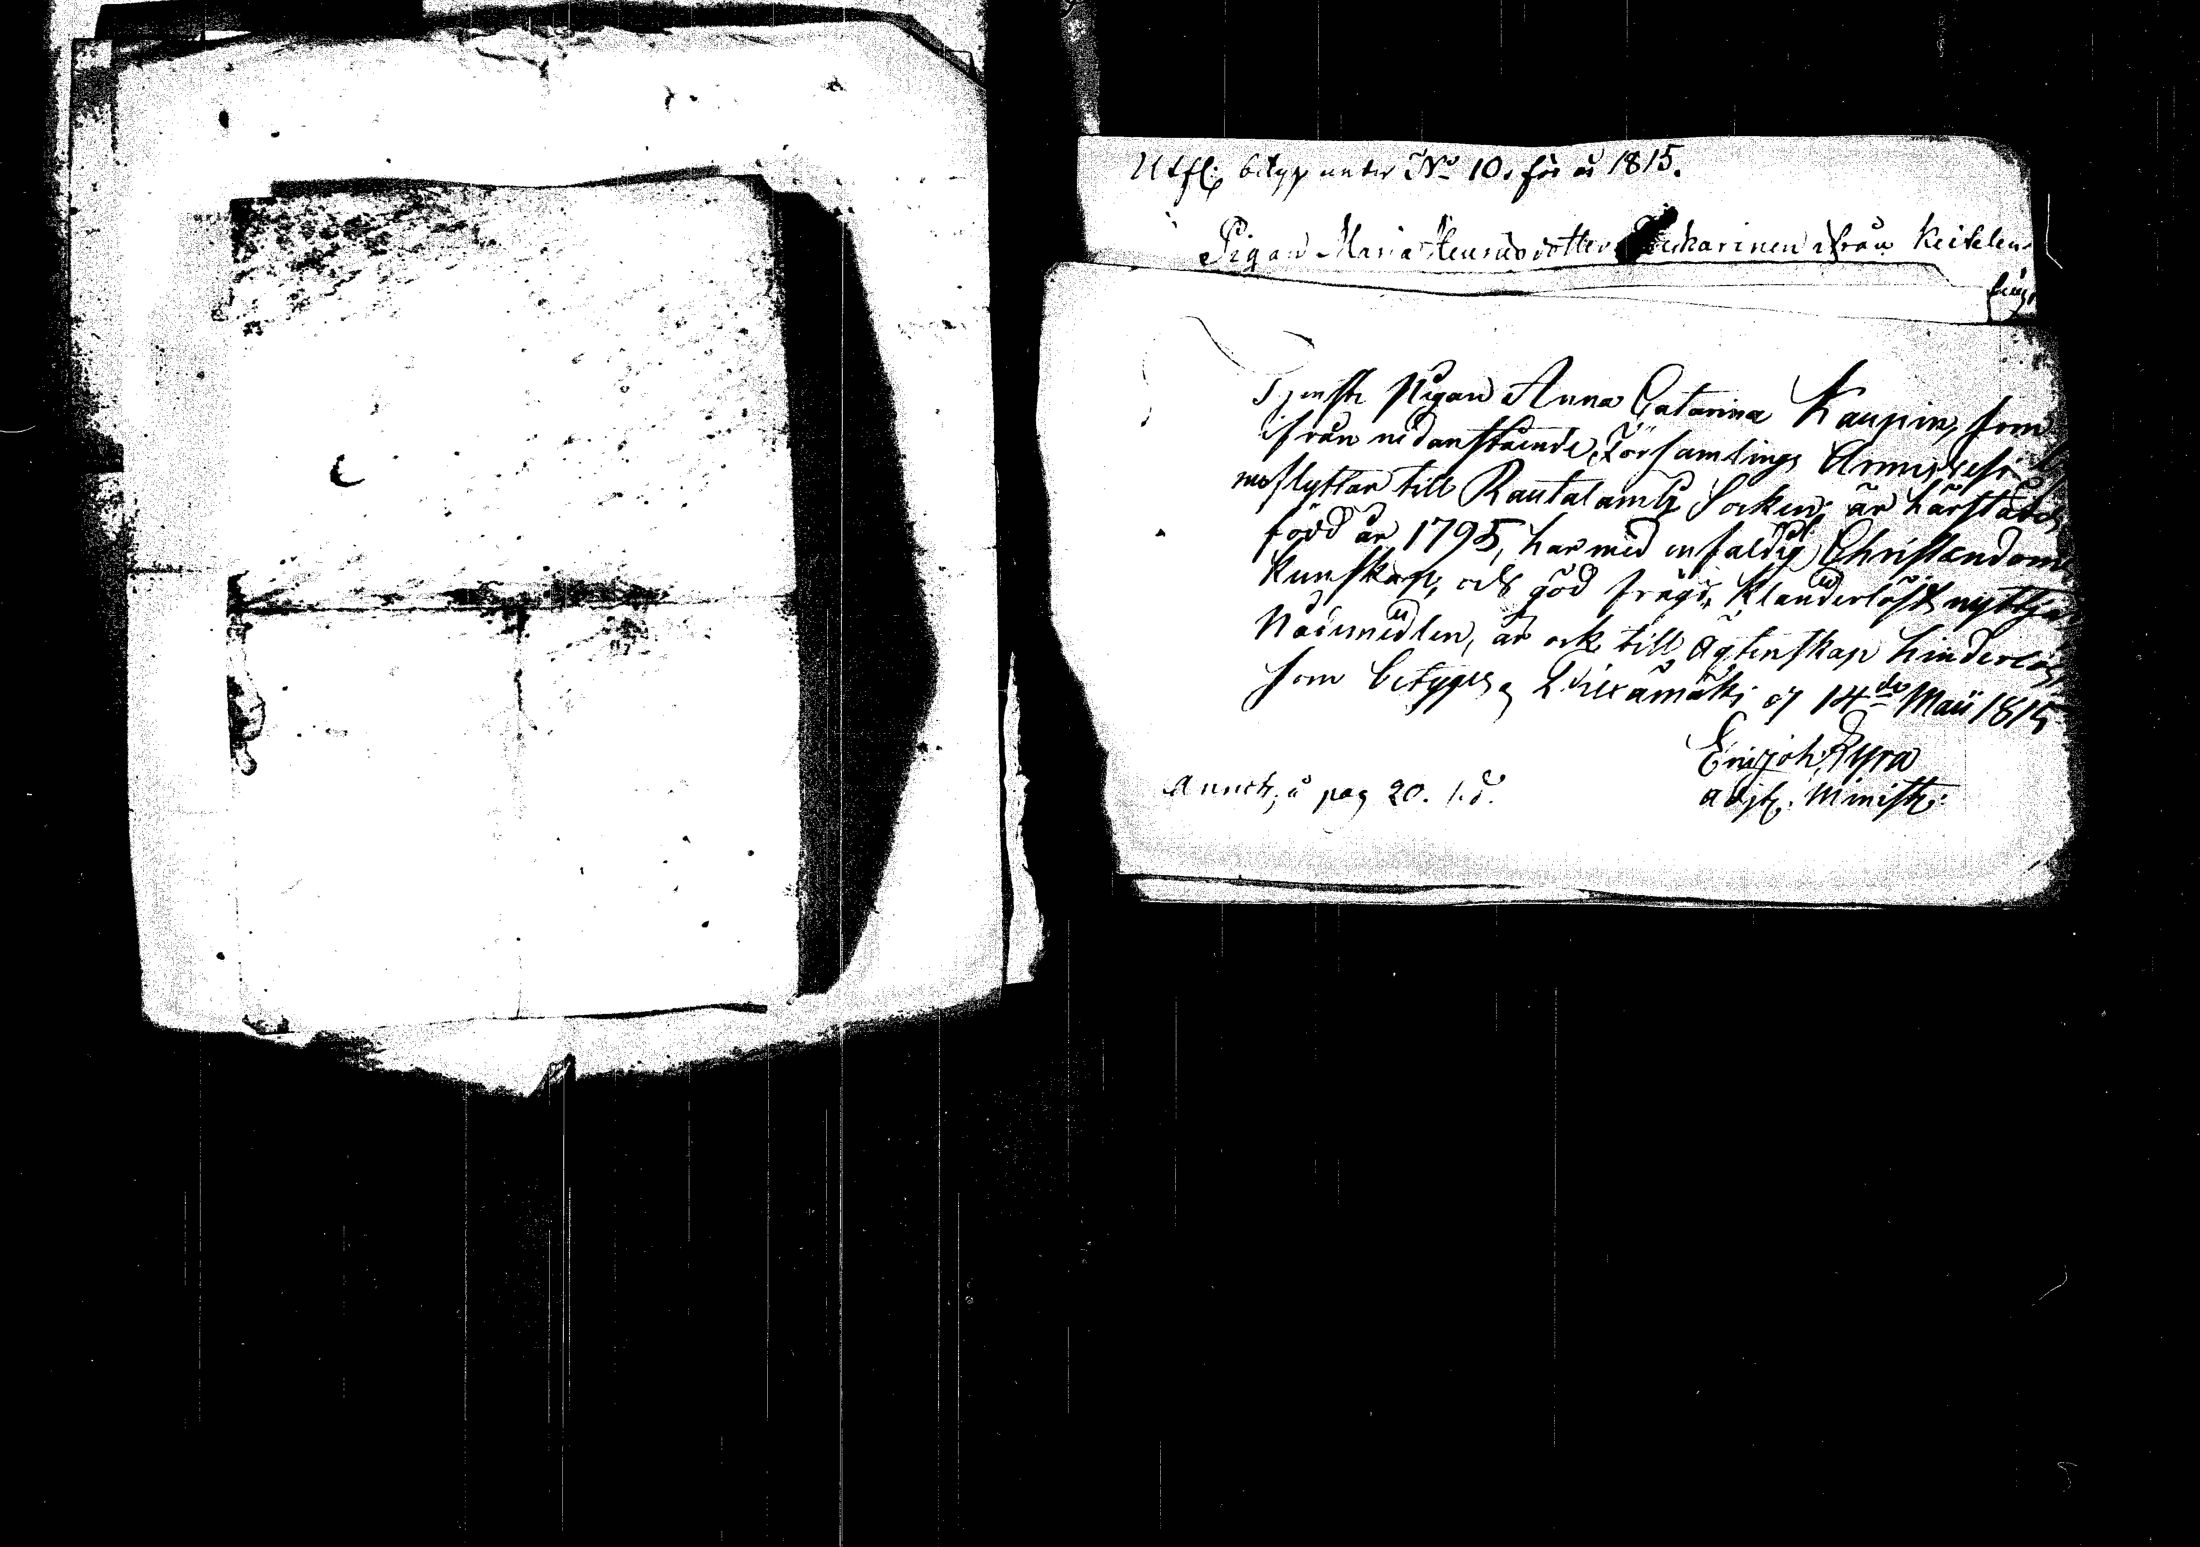 Utfl; betyg under No 10. för år 1815.
Pigan Maria Henricsdotter Puukarinen ifrån Keitelen-
Tjenste Pigan Anna Catarina Kaupin, som
ifrån nedanstående Församlings Annex
meflyttar till Rautalambi Socken; är härstädes
född år 1795, har med enfaldig Christendoms
kunskap, och god frägd, klanderlöst nyttja
Nådemedlen, är ock till Ägtenskap hinderlös
som betygas, Pielxämäki af 14de Maii 1815
Eric Joh. Kyra
adj. Minist:
Annot; å pag 20. s.d.